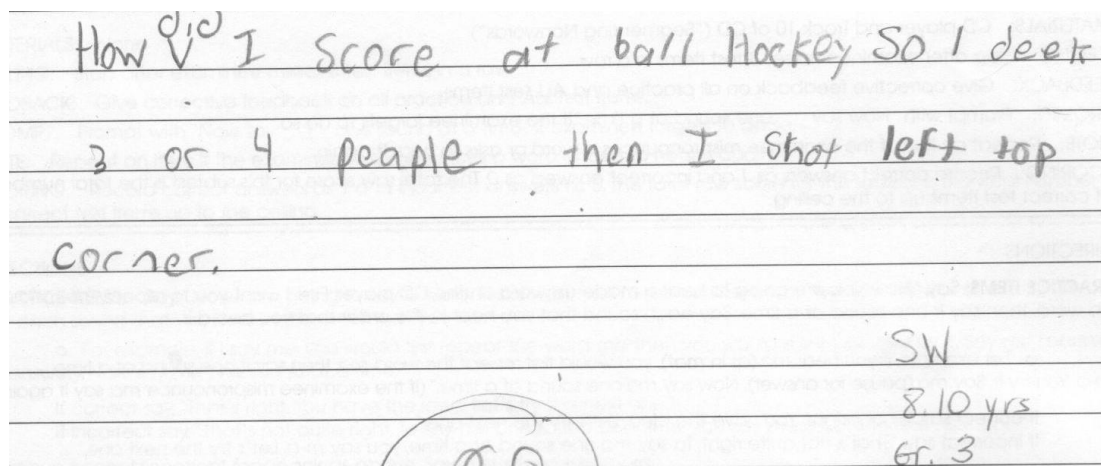 How did I score at ball Hockey so I deek
3 or 4 people then I shot left top
corner.
SW
8.10 yrs
Gr. 3